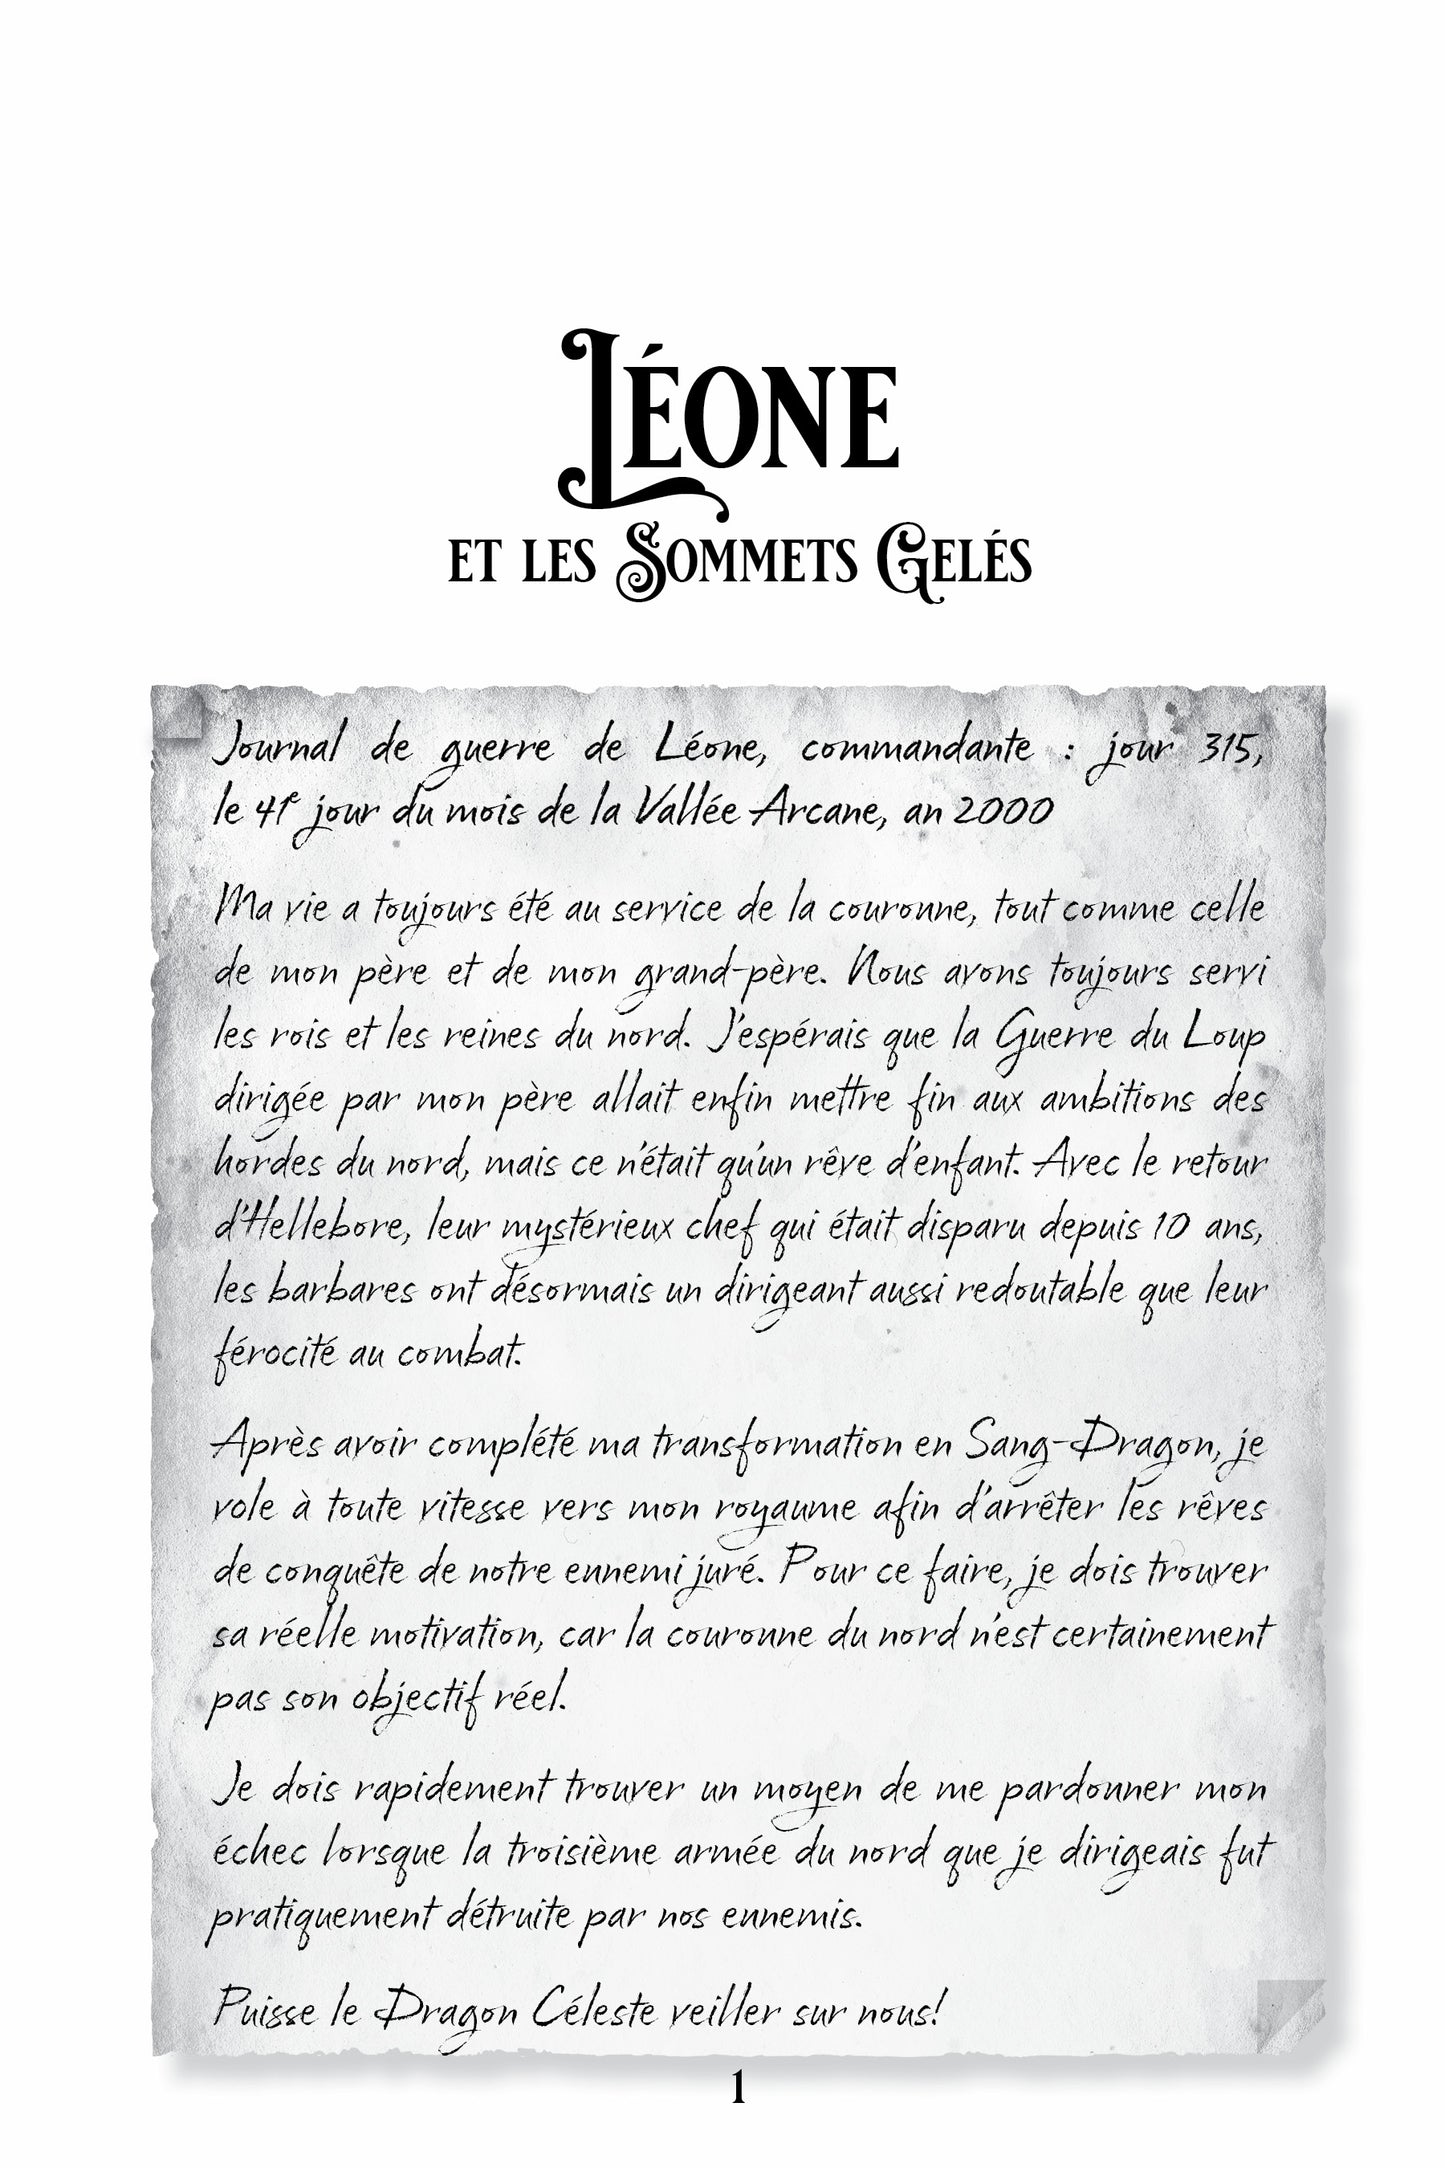 LÉONE
ET LES SOMMETS GELÉS
Journal de guerre de Léone, commandante : jour 315,
le 41e jour du mois de la Vallée Arcane, an 2000
Ma vie a toujours été au service de la couronne, tout comme celle
de mon père et de mon grand-père. Nous avons toujours servi
les rois et les reines du nord. J'espérais que la Guerre du Loup
dirigée par mon père allait enfin mettre fin aux ambitions des
hordes du nord, mais ce n'était qu'un rêve d'enfant. Avec le retour
d'Hellebore, leur mystérieux chef qui était disparu depuis 10 ans,
les barbares ont désormais un dirigeant aussi redoutable que leur
férocité au combat.
Après avoir complété ma transformation en Sang-Dragon, je
vole à toute vitesse vers mon royaume afin d'arrêter les rêves
de conquête de notre ennemi juré. Pour ce faire, je dois trouver
sa réelle motivation, car la couronne du nord n'est certainement
pas son objectif réel.
Je dois rapidement trouver un moyen de me pardonner mon
échec lorsque la troisième armée du nord que je dirigeais fut
pratiquement détruite par nos ennemis.
Puisse le Dragon Céleste veiller sur nous!
1